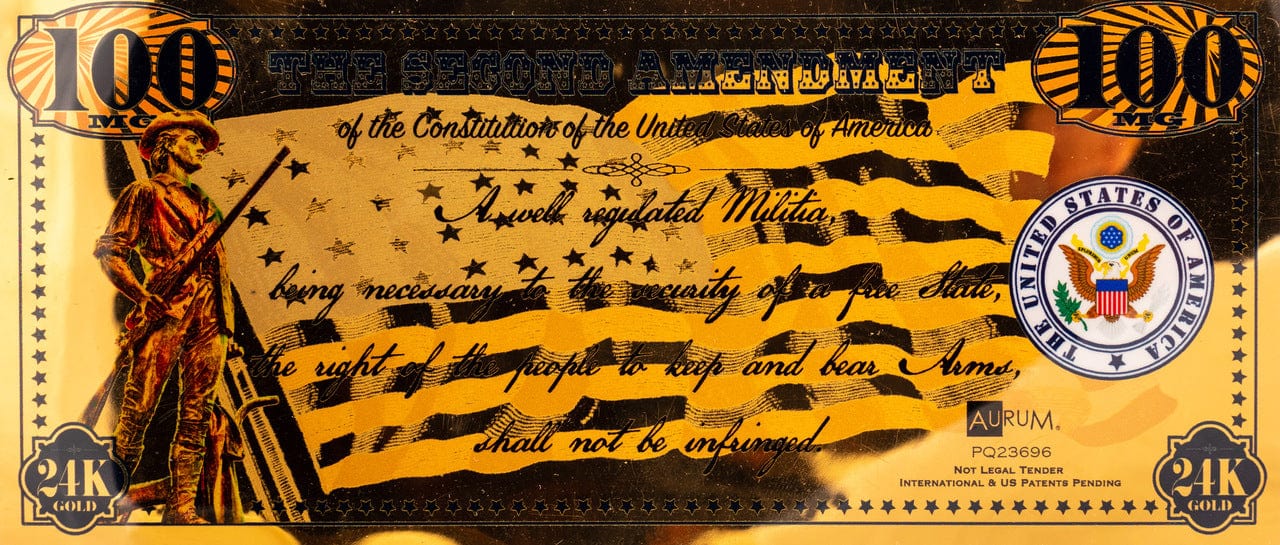 100
MG
THE SECOND AMENDMENT
100
MG
of the Constitution of the United States of America
A well regulated Militia,
being necessary to the security of a free State,
the right of the people to keep and bear Arms,
shall not be infringed.
THE UNITED STATES OF AMERICA
AURUM®
PQ23696
NOT LEGAL TENDER
INTERNATIONAL & US PATENTS PENDING
24K
GOLD
24K
GOLD